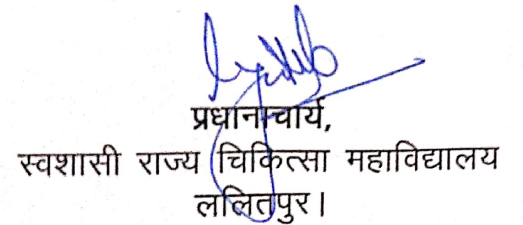 प्रधानाचार्य,
स्वशासी राज्य चिकित्सा महाविद्यालय
ललितपुर।